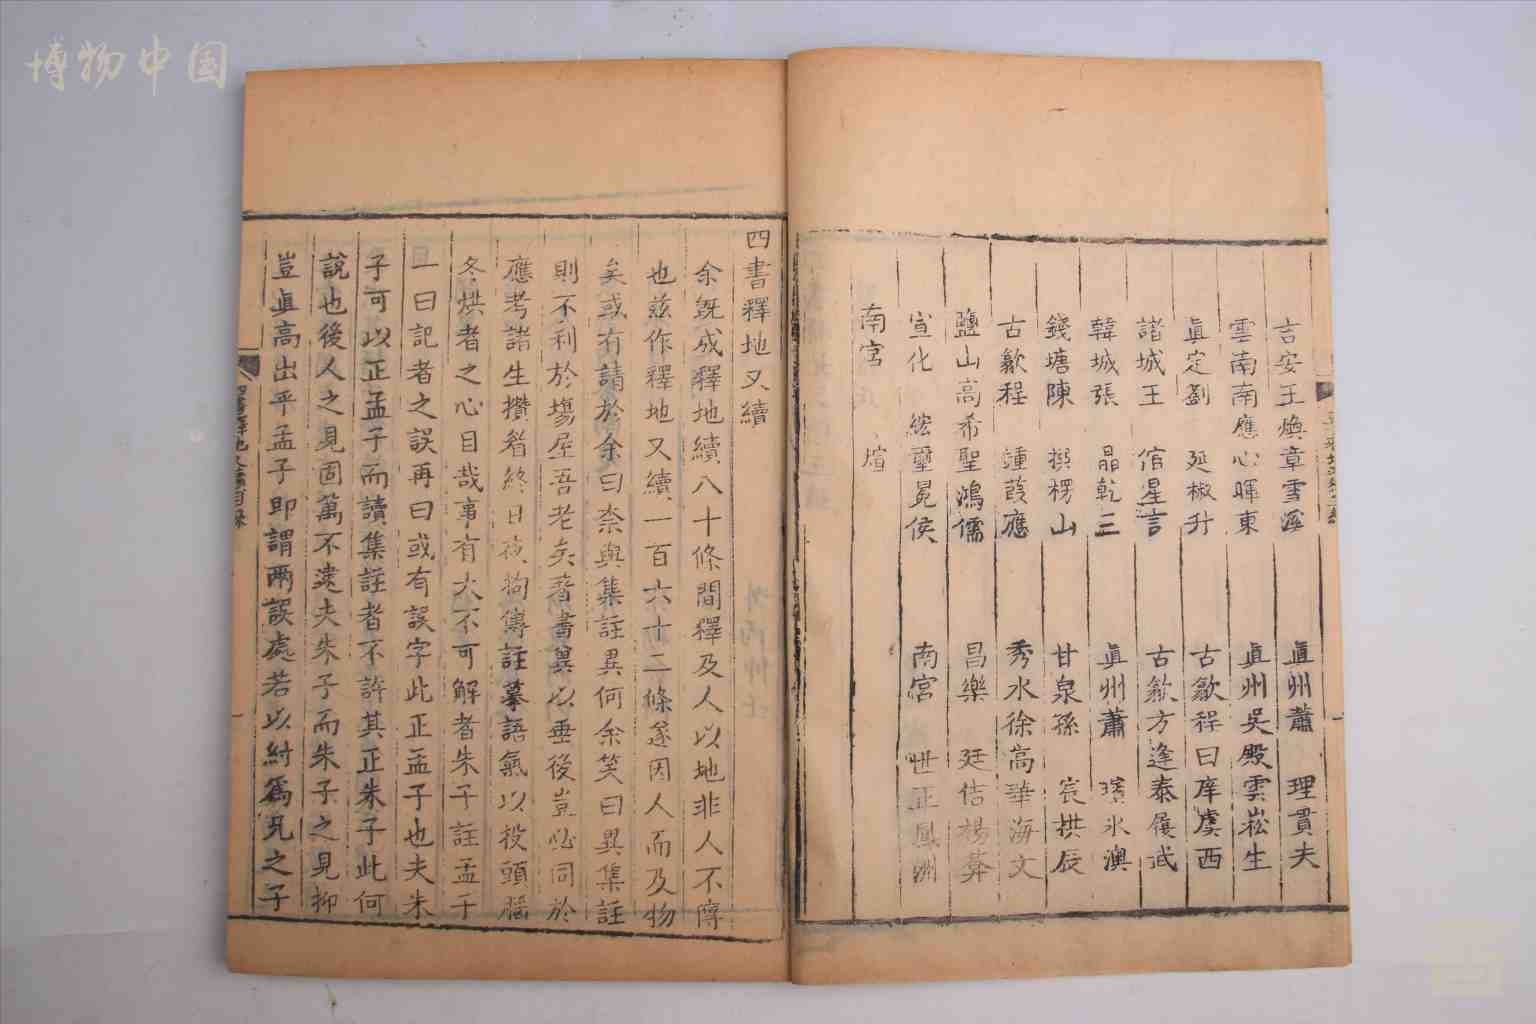 博物中国
吉安王 煥章雪溪 眞州蕭 理貫夫
雲南南應心暉東 眞州吳殿雲崧生
眞定劉 延椒升 古歙程曰庠虞西
諸城王 倌星言 古歙方逢泰履
韓城張 晶乾三 眞州蕭 冰澳
錢塘陳 撰楞山 甘泉孫 宸拱辰
古歙程 鍾葭應 秀水徐高華海文
鹽山高希聖鴻儒 昌樂 廷佶楊
宣化 璽晃侯 南宮 世正鳳洲
南宮 煊
四書釋地又續
余旣成釋地續八十條間釋及人以地非人不傳
也茲作釋地又續一百六十二條遂因人而及物
矣或有請於余曰柰與集註異何余笑曰異集註
則不利於場屋吾老矣著書異以垂後豈必同於
應考諸生攢眉終日夜拘傳註摹語氣以投頭腦
冬烘者之心目哉事有大不可解者朱子註孟子
一曰記者之誤再曰或有誤字此正孟子也夫朱
子可以正孟子而讀集註者不許其正朱子此何
說也後人之見固萬不逮夫朱子而朱子之見抑
豈眞高出乎孟子卽謂兩誤處若以紂爲兄之子
四書釋地又續目錄
一